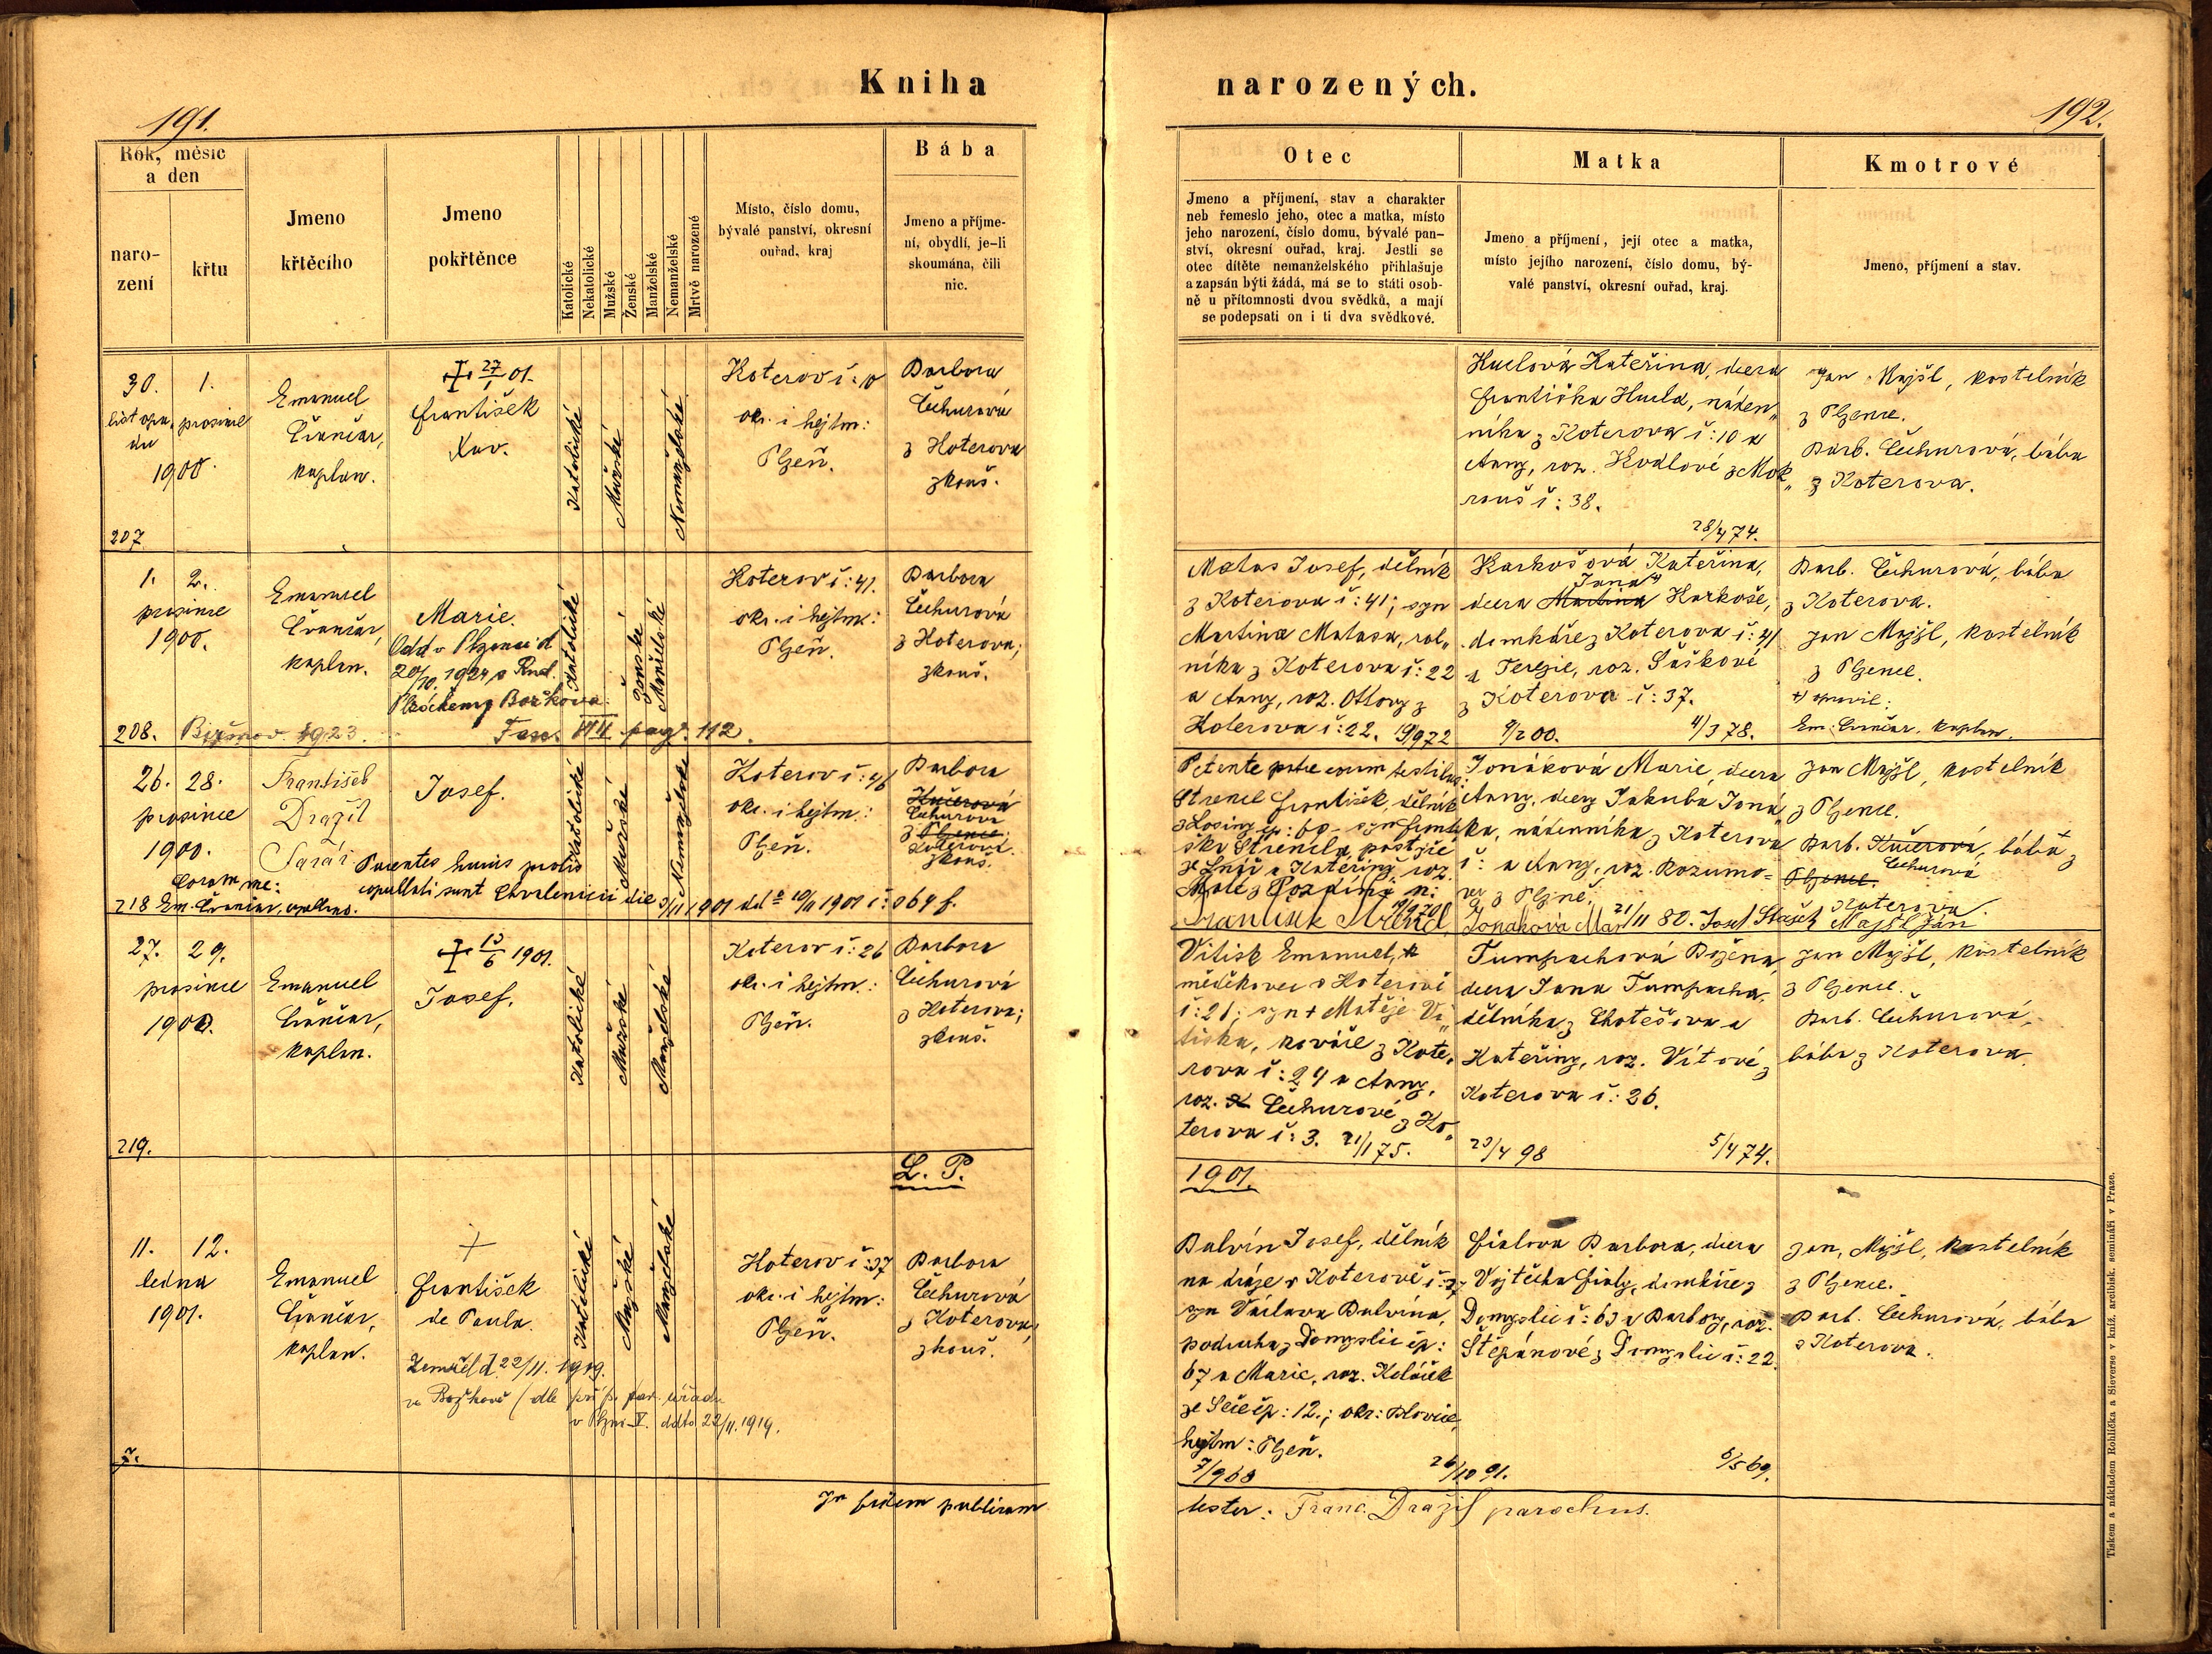 Kniha narozených.
191.
192.
Rok, měsíc
a den
naro-
zení
křtu
Jmeno
křtěcího
Jmeno
pokřtěnce
Katolické
Nekatolické
Mužské
Ženské
Manželské
Nemanželské
Mrtvě narozené
Místo, číslo domu,
bývalé panství, okresní
ouřad, kraj
Bába
Jmeno a příjme-
ní, obydlí, je-li
skoumána, čili
nic.
Otec
Jmeno a příjmení, stav a charakter
neb řemeslo jeho, otec a matka, místo
jeho narození, číslo domu, bývalé pan-
ství, okresní ouřad, kraj. Jestli se
otec dítěte nemanželského přihlašuje
a zapsán býti žádá, má se to státi osob-
ně u přítomnosti dvou svědků, a mají
se podepsati on i ti dva svědkové.
Matka
Jmeno a příjmení, její otec a matka,
místo jejího narození, číslo domu, bý-
valé panství, okresní ouřad, kraj.
Kmotrové
Jmeno, příjmení a stav.
30. 1.
listopa-
du prosince
1900.
207
Emanuel
kaplan.
27/1 01.
František
Xav.
Katolické
Mužské
Nemanželské
Koterov č: 10
okr. i hejtm:
Plzeň.
Barbora
Čechurová
z Koterova
zkouš.
Kateřina, dcera
Františka, náden„
níka z Koterova č: 10 a
Anny, roz. z Mok„
rouš č: 38.
28/4 74.
Jan Majšl, kostelník
z Plzence.
Barb. Čechurová, bába
z Koterova.
1. 2.
prosince
1900.
208.
Emanuel
kaplan.
Marie.
Odd. v Plzenci d
20/10. 1924 s Rud.
z Božkova.
1923.
Fasc. VII pag. 112.
Katolické
Ženské
Manželské
Koterov č: 41.
okr. i hejtm:
Plzeň.
Barbora
Čechurová
z Koterova;
zkouš.
Matas Josef, dělník
z Koterova č: 41; syn
Martina Matasa, rol„
níka z Koterova č: 22
a Anny, roz. Ottovy z
Koterova č: 22. 19/9 72
Karkošová Kateřina,
Jana +)
dcera Martina Karkoše,
domkáře z Koterova č: 41
a Terezie, roz. Šaškové
z Koterova č: 37.
9/2 00. 4/3 78.
Barb. Čechurová, bába
z Koterova.
Jan Majšl, kostelník
z Plzence.
+) opravil:
Em. kaplan.
26. 28.
prosince
1900.
218
František
Dražil
farář
Josef.
Parentes huius prolis
copulati sunt die 3/II 1901 dd° 10/II 1901 č: 064 f.
Coram me:
Em.
Katolické
Mužské
Nemanželské
Koterov č: 46
okr. i hejtm:
Plzeň.
Barbora
Kučerová
Čechurová
z Plzence;
Koterova.
zkouš.
Petente patre coram testibus:
Strencl František, dělník
z Losiny čp: 60 - syn Františ
ška Strencla,
a Kateřiny roz.
František Strencl
Jonáková Marie, dcera
Anny, dcery Jakuba Joná
ka, nádenníka z Koterova
č: a Anny, roz. Rozumo=
vé z Plzně.
Jonáková Mar 21/11 80. Josef Majšl Jan
Jan Majšl, kostelník
z Plzence.
Barb. Kučerová, bába z
Čechurová
Plzence.
Koterova.
27. 29.
prosince
1900.
219.
Emanuel
kaplan.
13/6 1901.
Josef.
Katolické
Mužské
Manželské
Koterov č: 26
okr. i hejtm.:
Plzeň.
Barbora
Čechurová
z Koterova;
zkouš.
Vitisk Emanuel,
mědikovec v Koterově
č: 21; syn + Matěje Vi„
tiska, kováře z Kote„
rova č: 24 a Anny,
roz. Čechurové z Ko„
terova č: 3. 21/1 75.
Tumpachová Božena,
dcera Jana Tumpacha,
dělníka z Chotěšova a
Kateřiny, roz. Vítové z
Koterova č: 26.
23/4 98 5/4 74.
Jan Majšl, kostelník
z Plzence.
Barb. Čechurová,
bába z Koterova.
L. P. 1901.
11. 12.
ledna
1901.
7.
Emanuel
kaplan.
František
de Paula.
Zemřel d. 22/11. 1919.
ve Božkově (dle příp. far. úřadu
v Plzni-V. ddto 22/11. 1919.
Katolické
Mužské
Manželské
Koterov č: 37
okr. i hejtm:
Plzeň.
Barbora
Čechurová
z Koterova,
zkouš.
Balvín Josef, dělník
na dráze v Koterově č: 37
syn Václava Balvína,
podruha z Domyslic čp:
67 a Marie, roz. Koláček
ze Seče čp: 12.; okr: Blovice,
hejtm: Plzeň.
7/9 68 26/10 91.
Fialova Barbora, dcera
Vojtěcha Fialy, domkáře z
Domyslic č: 63 a Barbory, roz.
Štěpánové z Domyslic č: 22.
6/5 69.
Jan Majšl, kostelník
z Plzence.
Barb. Čechurová, bába
z Koterova.
In fidem publicam testor: Franc. Dražil parochus.
Tiskem a nákladem Rohlíčka a Sieverse v kníž. arcibisk. semináři v Praze.